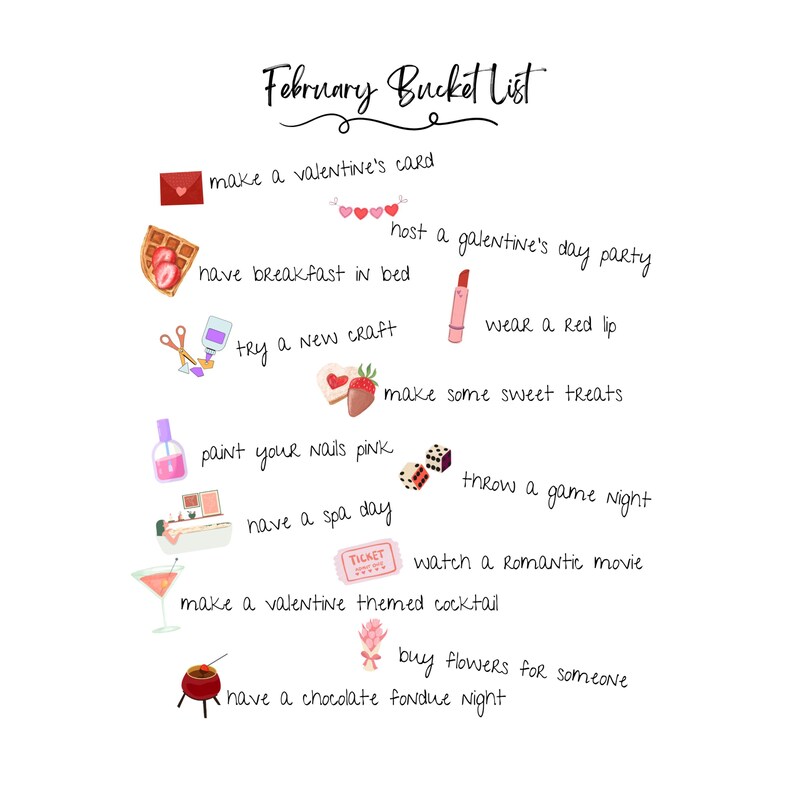 February Bucket List
make a valentine's card
host a galentine's day party
have breakfast in bed
wear a red lip
try a new craft
make some sweet treats
paint your nails pink
throw a game night
have a spa day
TICKET
ADMIT ONE
watch a romantic movie
make a valentine themed cocktail
buy flowers for someone
have a chocolate fondue night